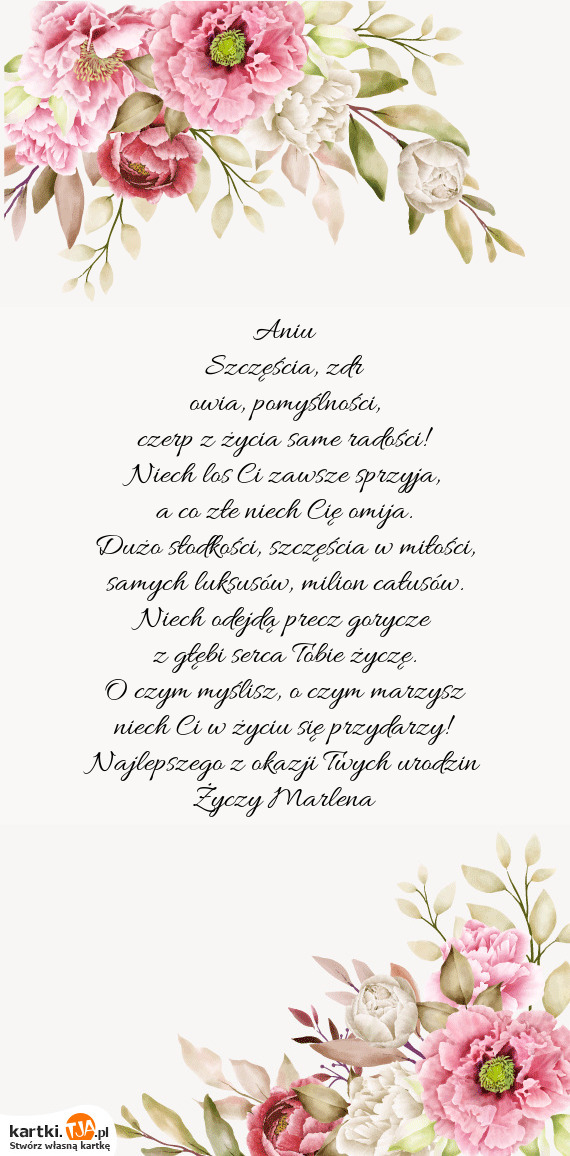 Aniu
Szczęścia, zdr
owia, pomyślności,
czerp z życia same radości!
Niech los Ci zawsze sprzyja,
a co złe niech Cię omija.
Dużo słodkości, szczęścia w miłości,
samych luksusów, milion całusów.
Niech odejdą precz gorycze
z głębi serca Tobie życzę.
O czym myślisz, o czym marzysz
niech Ci w życiu się przydarzy!
Najlepszego z okazji Twych urodzin
Życzy Marlena
kartki.TJA.pl
Stwórz własną kartkę